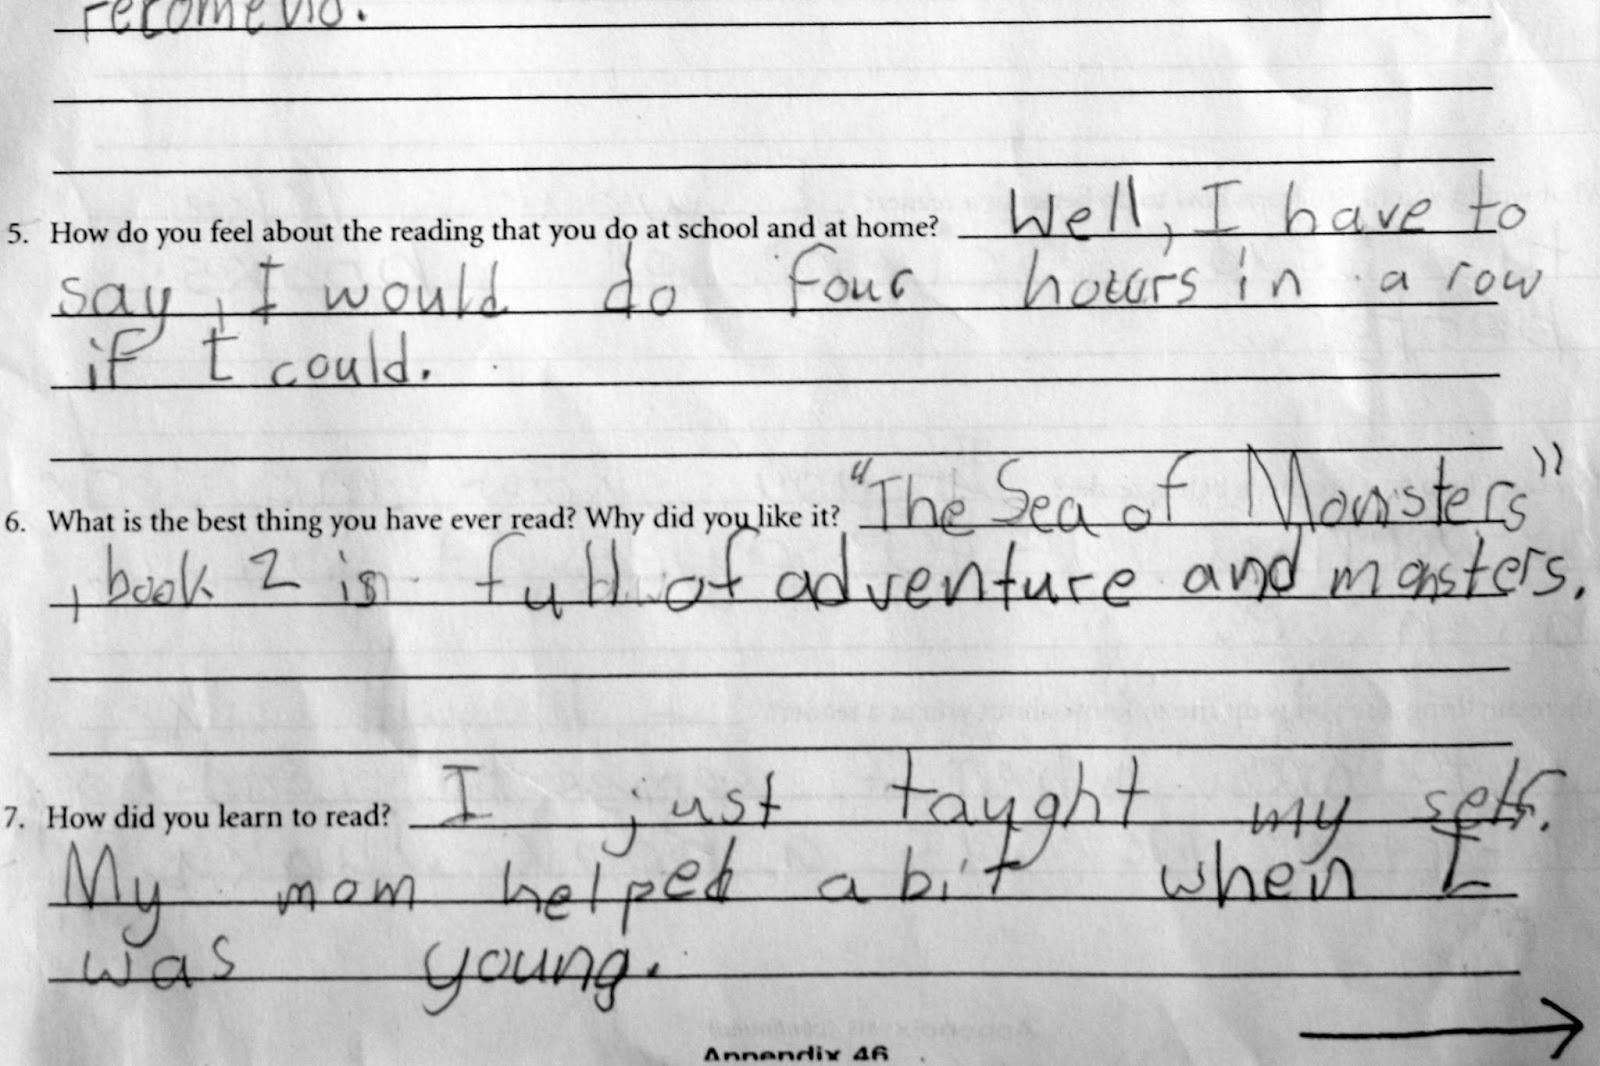 recomend.
5. How do you feel about the reading that you do at school and at home? Well, I have to
say, I would do four hours in a row
if I could.
6. What is the best thing you have ever read? Why did you like it? "The Sea of Monsters"
, book 2 is full of adventure and monsters.
7. How did you learn to read? I just taught my self.
My mom helped a bit when I
was young.
Appendix 46